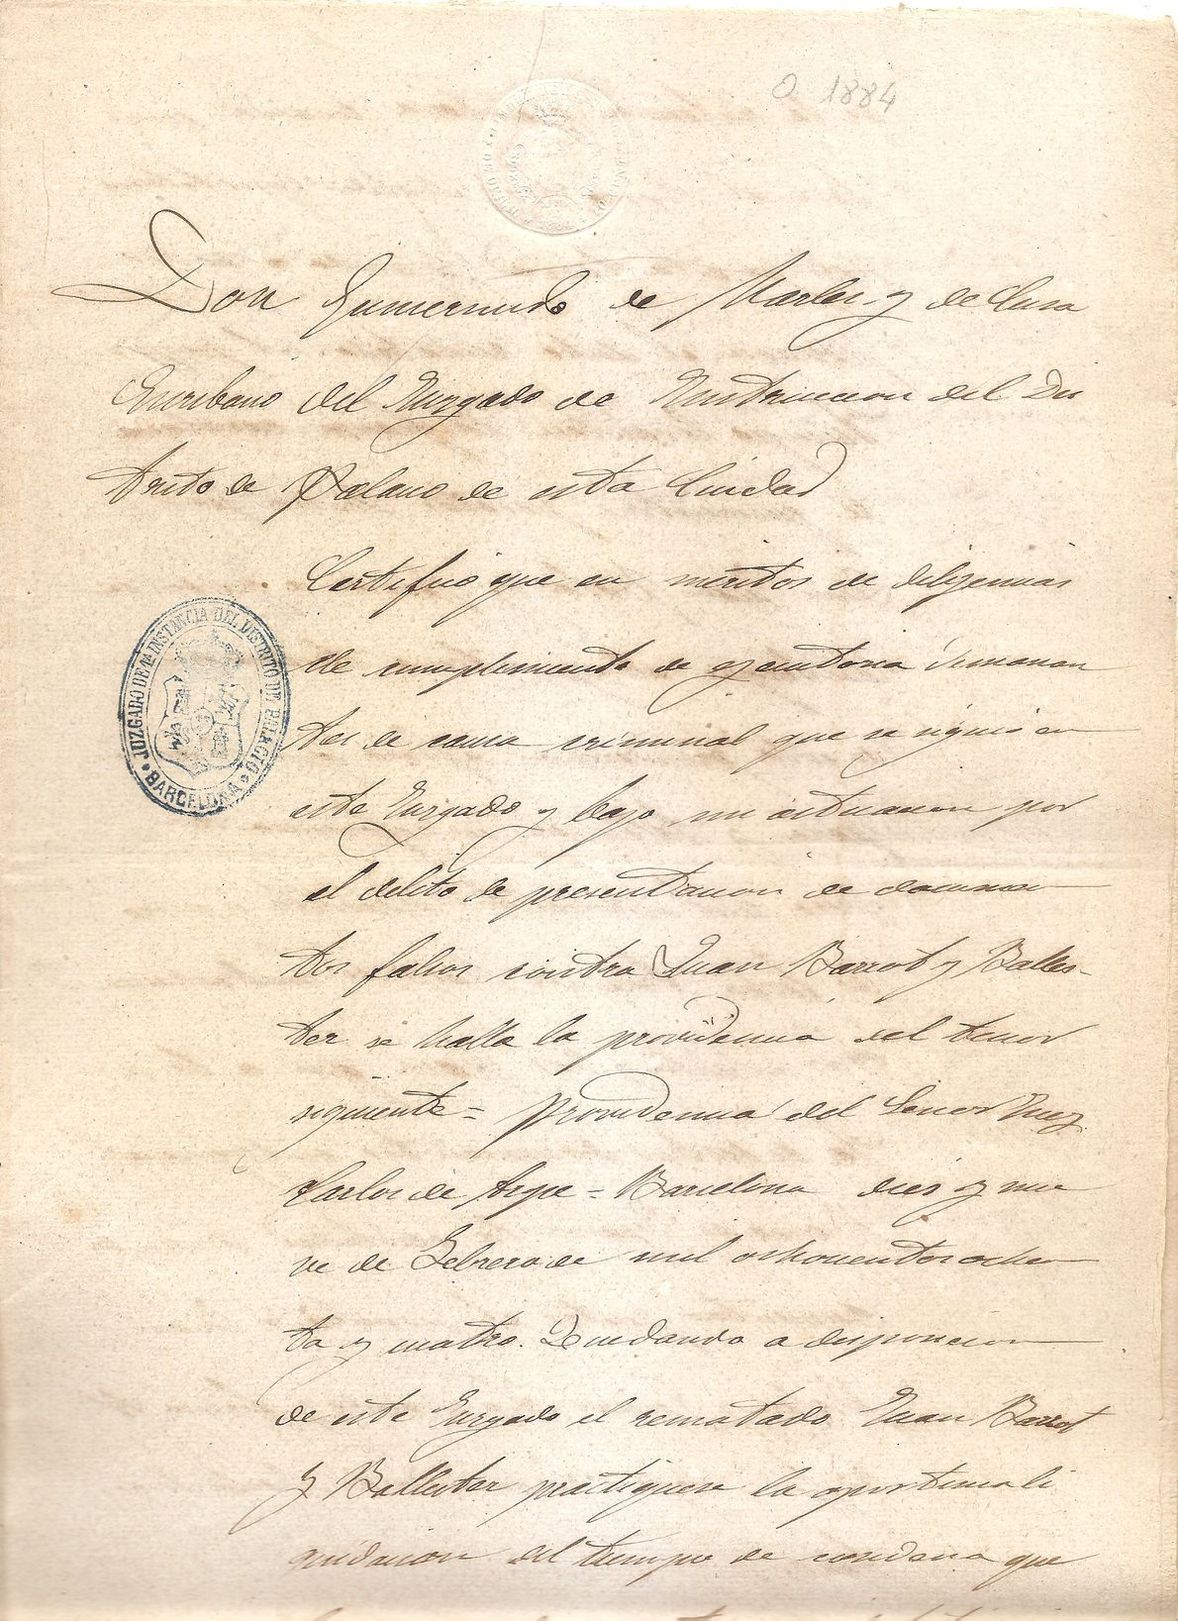 O 1884
Don Gumersindo de Marlés y de Cusa
Escribano del Juzgado de Instruccion del Dis
trito de Palacio de esta Ciudad
Certifico que en meritos de diligencias
de cumplimiento de ejecutoria dimanan
tes de causa criminal que se siguió en
este Juzgado y bajo mi actuacion por
el delito de presentacion de documen
tos falsos contra Juan Barrot y Balles-
ter se halla la providencia del tenor
siguiente = Providencia del Señor Juez
Carlos de = Barcelona diez y nue
ve de Febrero de mil ochocientos ochen
ta y cuatro. Quedando a disposicion
de este Juzgado el rematado Juan Barrot
y Ballester practiquese la oportuna li
quidacion del tiempo de condena que
JUZGADO DE 1ª INSTANCIA DEL DISTRITO DE PALACIO
BARCELONA